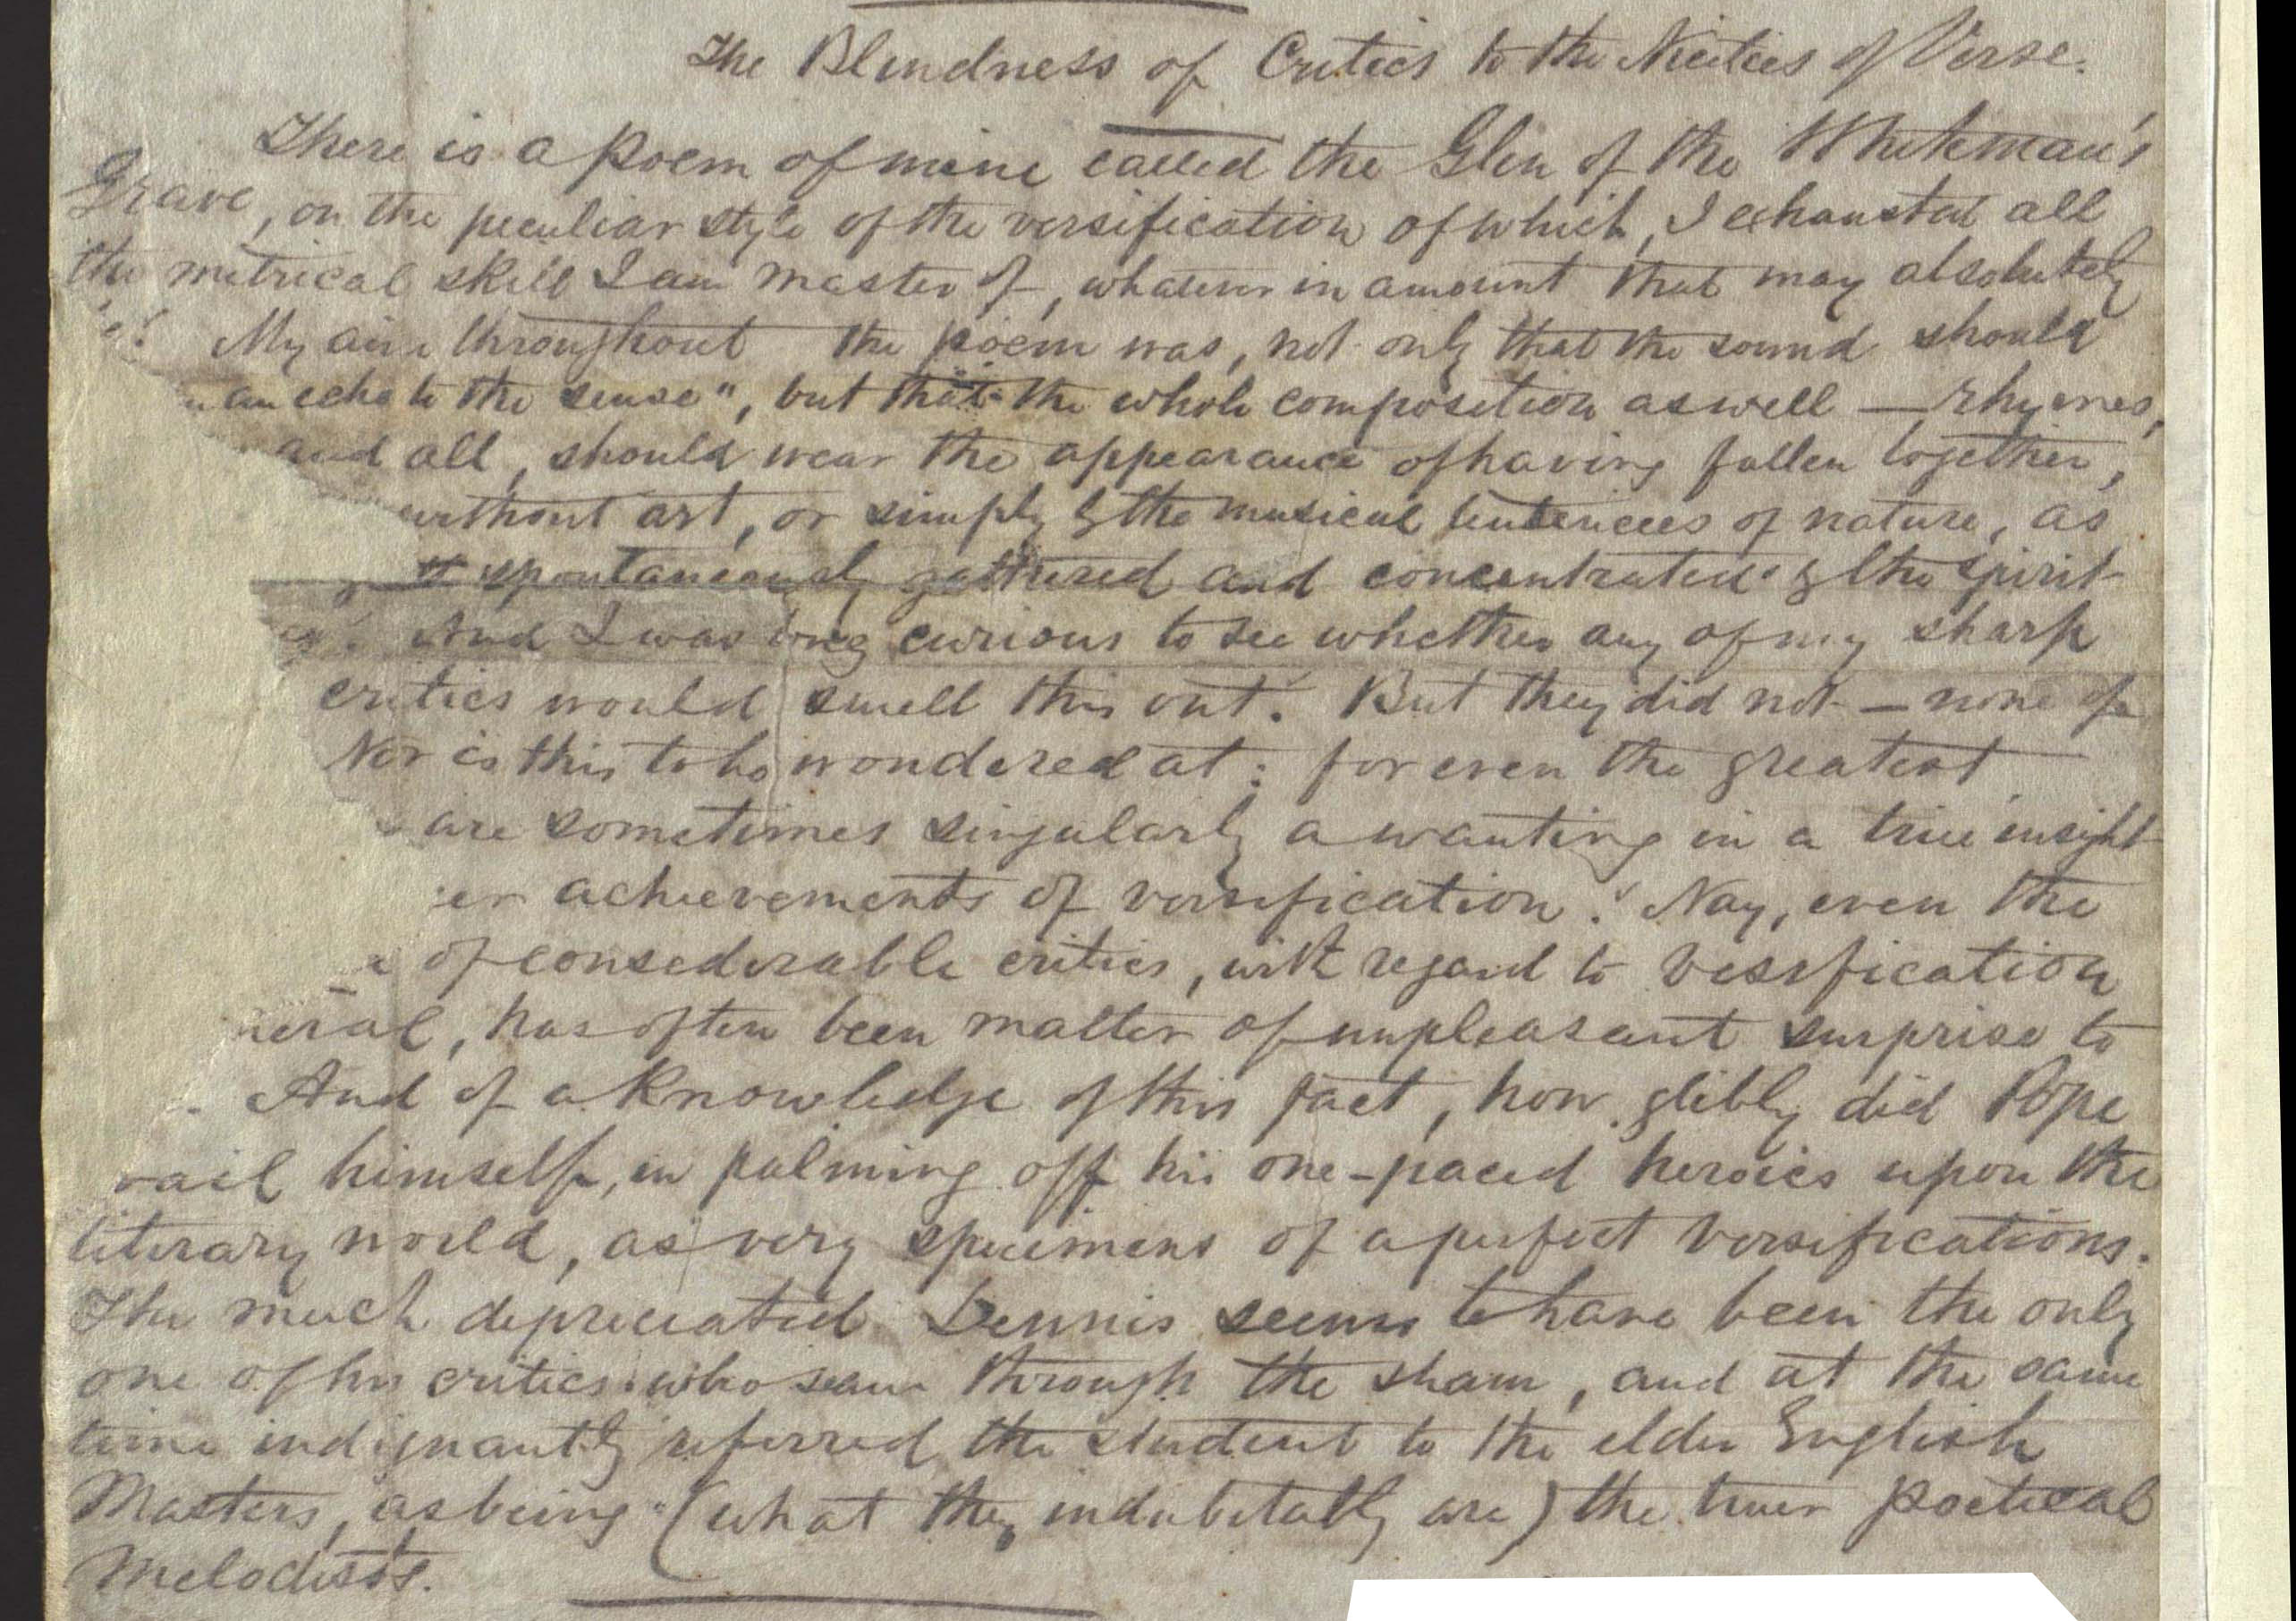 The Blindness of Critics to the Niceties of Verse.
There is a poem of mine called the Glen of the Whiteman's
Grave, on the peculiar style of the versification of which, I exhausted all
the metrical skill I am master of, whatever in amount that may absolutely
My aim throughout the poem was, not only that the sound should
an echo to the sense", but that the whole composition as well — rhymes,
and all, should wear the appearance of having fallen together,
without art, or simply by the musical tendencies of nature, as
spontaneously gathered and concentrated by the spirit
And I was long curious to see whether any of my sharp
critics would smell this out. But they did not — none of
Nor is this to be wondered at: for even the greatest
are sometimes singularly awanting in a true insight
achievements of versification. Nay, even the
of considerable critics, with regard to versification
neral, has often been matter of unpleasant surprise to
And of a knowledge of this fact, how glibly did Pope
vail himself, in palming off his one-paced heroics upon the
literary world, as very specimens of a perfect versifications.
The much depreciated Dennis seems to have been the only
one of his critics who saw through the sham, and at the same
time indignantly referred the student to the elder English
Masters, as being (what they indubitably are) the truer poetical
Melodists.